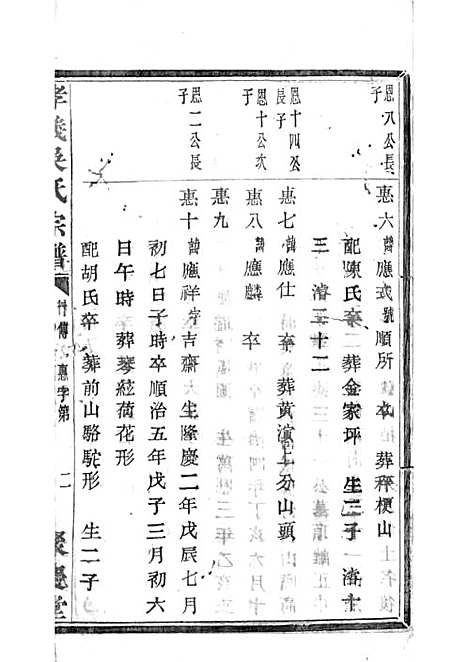 恩八公長子
惠六 諱應式號順所 卒 葬秤梗山
配陳氏卒 葬金家坪 生三子 一濟十
三 濬二十二
恩十四公長子
惠七 諱應仕 卒 葬黃濵上分山頭
恩十公次子
惠八 諱應麟 卒
惠九
恩二公長子
惠十 諱應祥字吉齋 生隆慶二年戊辰七月
初七日子時卒順治五年戊子三月初六
日午時 葬琴絃荷花形
配胡氏卒 葬前山駱駝形 生二子
孝義吳氏宗譜 行傳 惠字第 二 聚慶堂